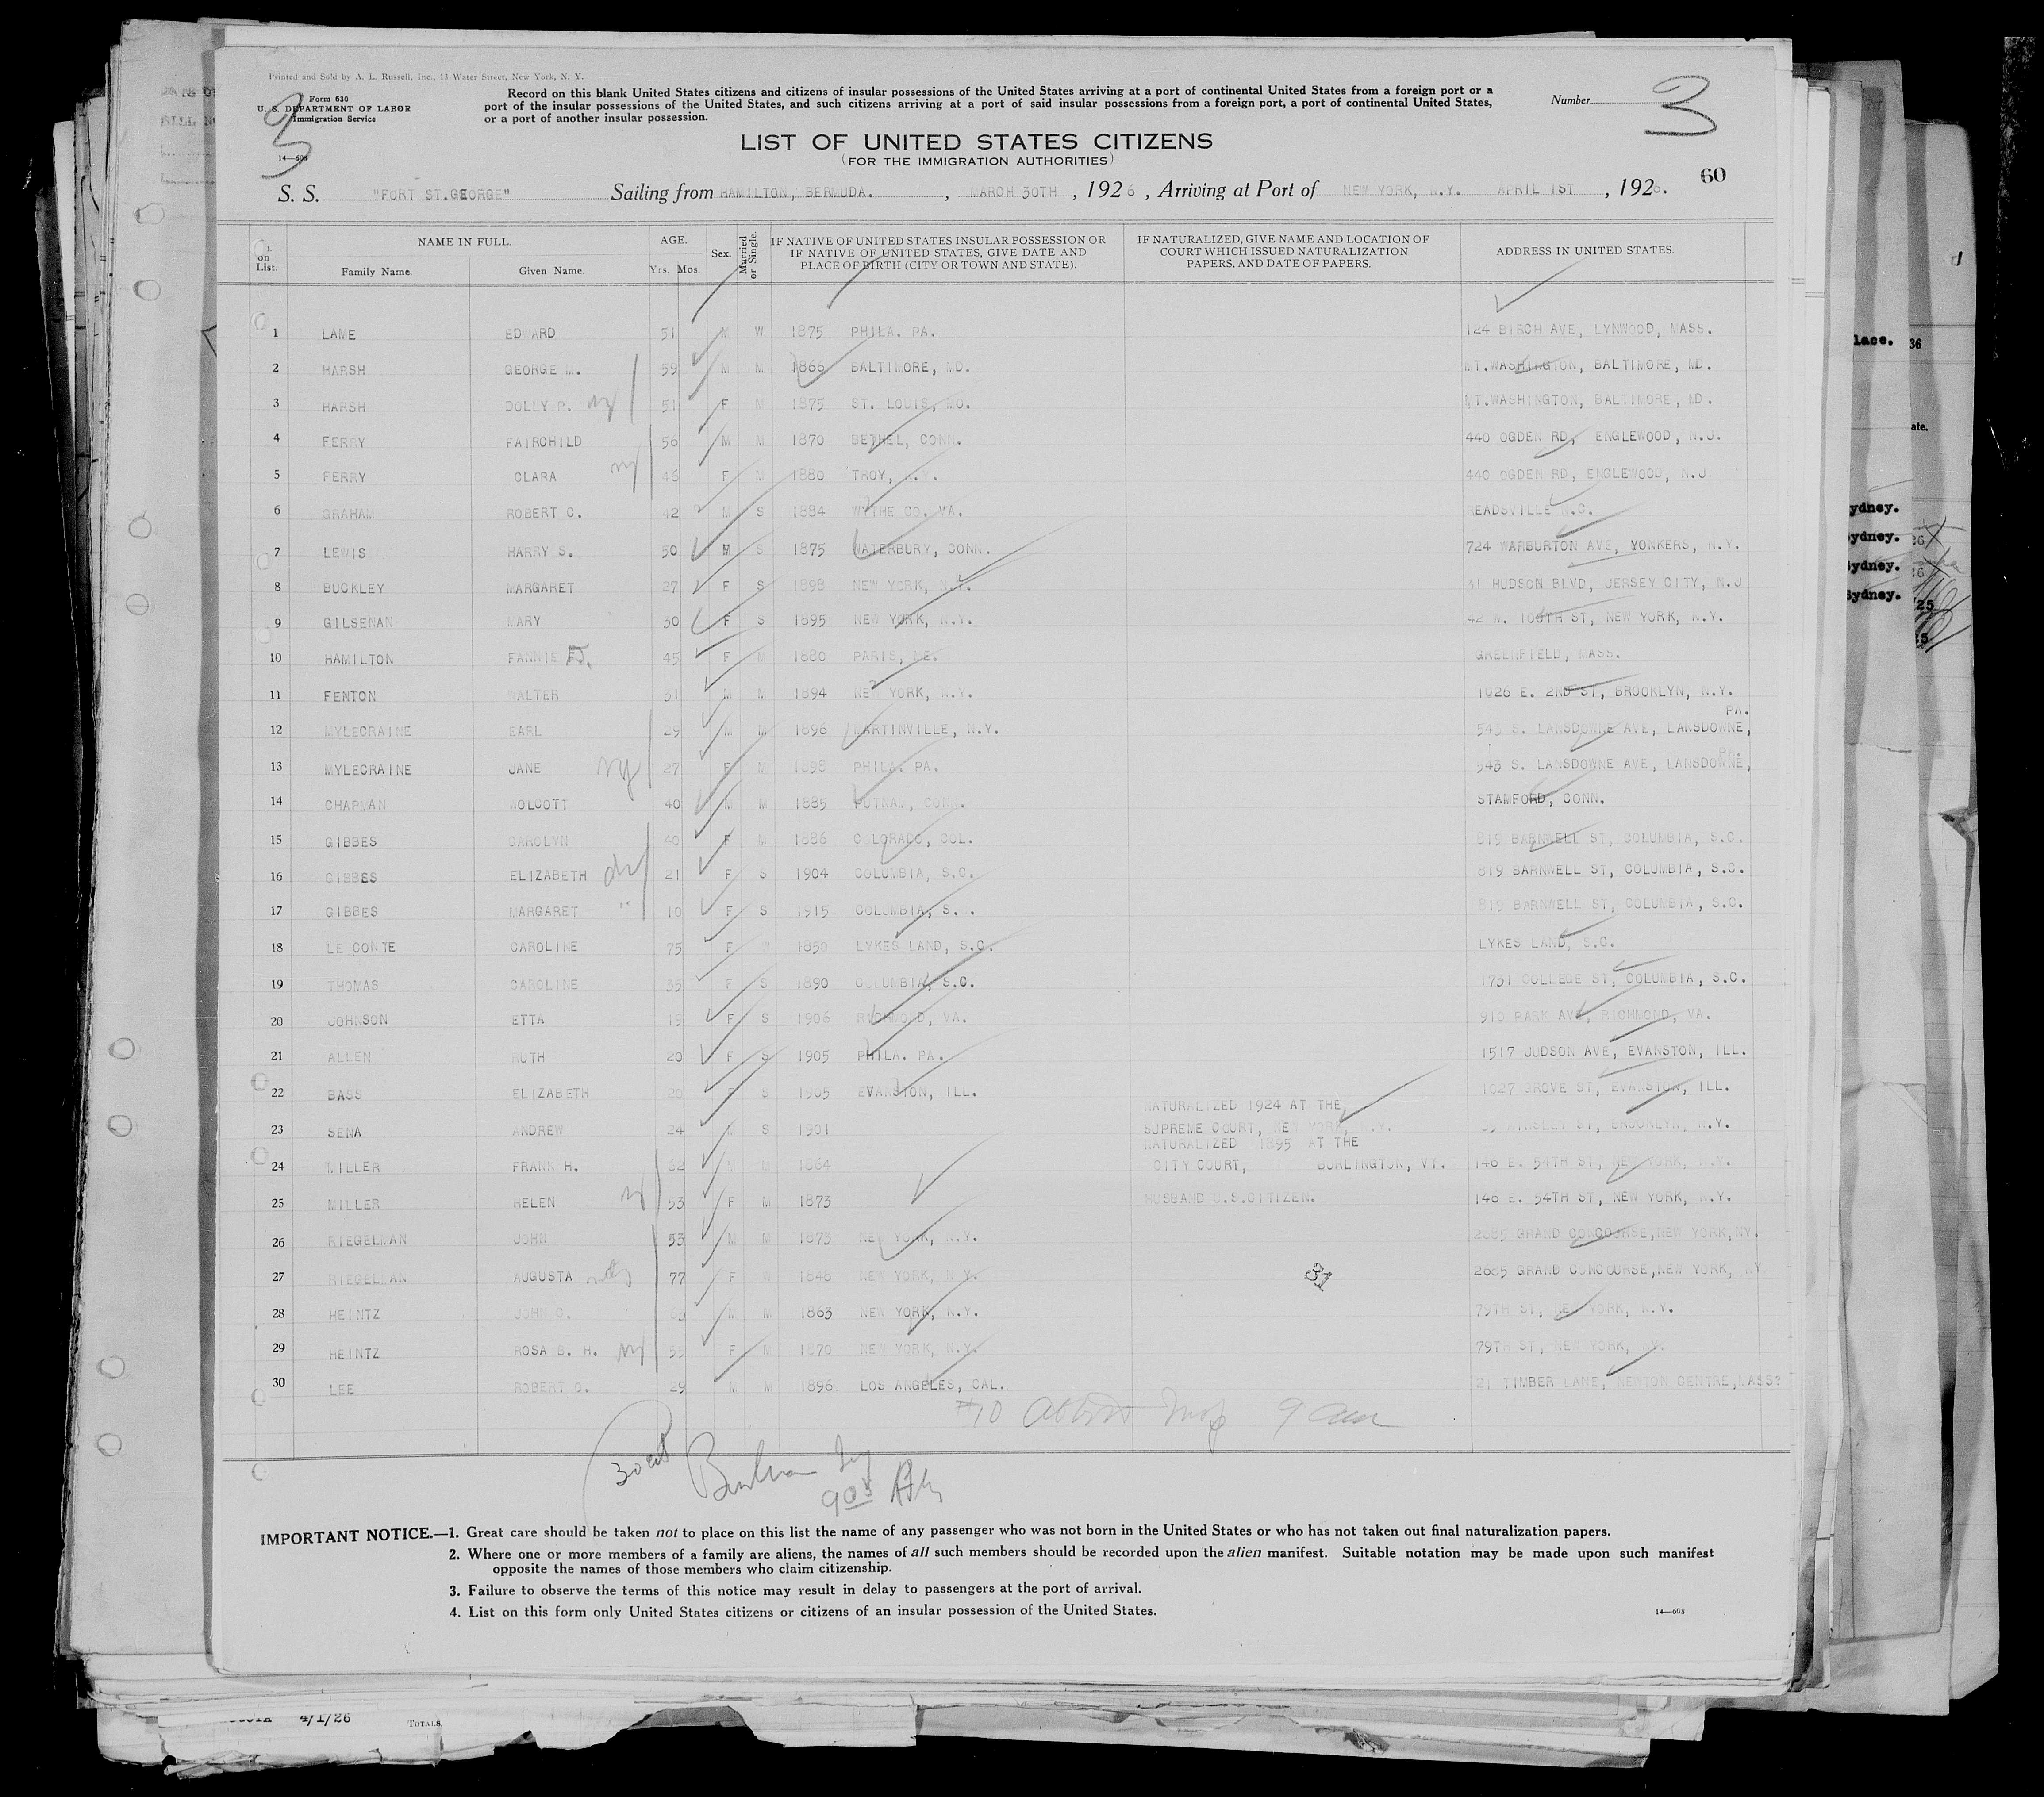 Printed and Sold by A. L. Russell, Inc., 13 Water Street, New York, N. Y.
Form 630
U. S. DEPARTMENT OF LABOR
Immigration Service
14—608
3
Record on this blank United States citizens and citizens of insular possessions of the United States arriving at a port of continental United States from a foreign port or a
port of the insular possessions of the United States, and such citizens arriving at a port of said insular possessions from a foreign port, a port of continental United States,
or a port of another insular possession.
Number
3
LIST OF UNITED STATES CITIZENS
(FOR THE IMMIGRATION AUTHORITIES)
60
S. S. "FORT ST.GEORGE" Sailing from HAMILTON, BERMUDA. , MARCH 30TH , 1926 , Arriving at Port of NEW YORK, N.Y. APRIL 1ST , 1926.
on List. NAME IN FULL. Family Name. Given Name. AGE. Yrs. Mos. Sex. Married or Single. IF NATIVE OF UNITED STATES INSULAR POSSESSION OR IF NATIVE OF UNITED STATES, GIVE DATE AND PLACE OF BIRTH (CITY OR TOWN AND STATE). IF NATURALIZED, GIVE NAME AND LOCATION OF COURT WHICH ISSUED NATURALIZATION PAPERS, AND DATE OF PAPERS. ADDRESS IN UNITED STATES.
1 LAME EDWARD 51 M W 1875 PHILA. PA. 124 BIRCH AVE, LYNWOOD, MASS.
2 HARSH GEORGE M. 59 M M 1866 BALTIMORE, MD. MT.WASHINGTON, BALTIMORE, MD.
3 HARSH DOLLY P. 51 F M 1875 ST. LOUIS, MO. MT.WASHINGTON, BALTIMORE, MD.
4 FERRY FAIRCHILD 56 M M 1870 BETHEL, CONN. 440 OGDEN RD, ENGLEWOOD, N.J.
5 FERRY CLARA 46 F M 1880 TROY, N.Y. 440 OGDEN RD, ENGLEWOOD, N.J.
6 GRAHAM ROBERT C. 42 M S 1884 WYTHE CO. VA. READSVILLE N.C.
7 LEWIS HARRY S. 50 M S 1875 WATERBURY, CONN. 724 WARBURTON AVE, YONKERS, N.Y.
8 BUCKLEY MARGARET 27 F S 1898 NEW YORK, N.Y. 31 HUDSON BLVD, JERSEY CITY, N.J
9 GILSENAN MARY 30 F S 1895 NEW YORK, N.Y. 42 W. 106TH ST, NEW YORK, N.Y.
10 HAMILTON FANNIE F.J. 45 F M 1880 PARIS, ME. GREENFIELD, MASS.
11 FENTON WALTER 31 M M 1894 NEW YORK, N.Y. 1026 E. 2ND ST, BROOKLYN, N.Y.
12 MYLECRAINE EARL 29 M M 1896 MARTINVILLE, N.Y. 543 S. LANSDOWNE AVE, LANSDOWNE, PA.
13 MYLECRAINE JANE 27 F M 1898 PHILA. PA. 543 S. LANSDOWNE AVE, LANSDOWNE, PA.
14 CHAPMAN WOLCOTT 40 M M 1885 PUTNAM, CONN. STAMFORD, CONN.
15 GIBBES CAROLYN 40 F M 1886 COLORADO, COL. 819 BARNWELL ST, COLUMBIA, S.C.
16 GIBBES ELIZABETH 21 F S 1904 COLUMBIA, S.C. 819 BARNWELL ST, COLUMBIA, S.C.
17 GIBBES MARGARET 10 F S 1915 COLUMBIA, S. . 819 BARNWELL ST, COLUMBIA, S.C.
18 LE CONTE CAROLINE 75 F W 1850 LYKES LAND, S.C. LYKES LAND, S.C.
19 THOMAS CAROLINE 35 F S 1890 COLUMBIA, S.C. 1731 COLLEGE ST, COLUMBIA, S.C.
20 JOHNSON ETTA 19 F S 1906 RICHMOND, VA. 910 PARK AVE, RICHMOND, VA.
21 ALLEN RUTH 20 F S 1905 PHILA. PA. 1517 JUDSON AVE, EVANSTON, ILL.
22 BASS ELIZABETH 20 F S 1905 EVANSTON, ILL. 1027 GROVE ST, EVANSTON, ILL.
NATURALIZED 1924 AT THE
23 SENA ANDREW 24 M S 1901 SUPREME COURT, NEW YORK, N.Y. ST, BROOKLYN, N.Y.
NATURALIZED 1895 AT THE
24 MILLER FRANK H. 62 M M 1864 CITY COURT, BURLINGTON, VT. 146 E. 54TH ST, NEW YORK, N.Y.
25 MILLER HELEN 53 F M 1873 HUSBAND U.S.CITIZEN. 146 E. 54TH ST, NEW YORK, N.Y.
26 RIEGELMAN JOHN 53 M M 1873 NEW YORK, N.Y. 2685 GRAND CONCOURSE,NEW YORK,NY.
27 RIEGELMAN AUGUSTA 77 F W 1848 NEW YORK, N.Y. 2685 GRAND CONCOURSE,NEW YORK, NY
31
28 HEINTZ JOHN C. 63 M M 1863 NEW YORK, N.Y. 79TH ST, NEW YORK, N.Y.
29 HEINTZ ROSA B. H. 55 F M 1870 NEW YORK, N.Y. 79TH ST, NEW YORK, NY.
30 LEE ROBERT O. 29 M M 1896 LOS ANGELES, CAL. 21 TIMBER LANE, NEWTON CENTRE,MASS?
IMPORTANT NOTICE.—1. Great care should be taken not to place on this list the name of any passenger who was not born in the United States or who has not taken out final naturalization papers.
2. Where one or more members of a family are aliens, the names of all such members should be recorded upon the alien manifest. Suitable notation may be made upon such manifest
opposite the names of those members who claim citizenship.
3. Failure to observe the terms of this notice may result in delay to passengers at the port of arrival.
4. List on this form only United States citizens or citizens of an insular possession of the United States.
14—608
4/1/26 TOTALS.
lace. 36
ate.
ydney.
ydney. 26
Sydney. 26
Sydney. 25